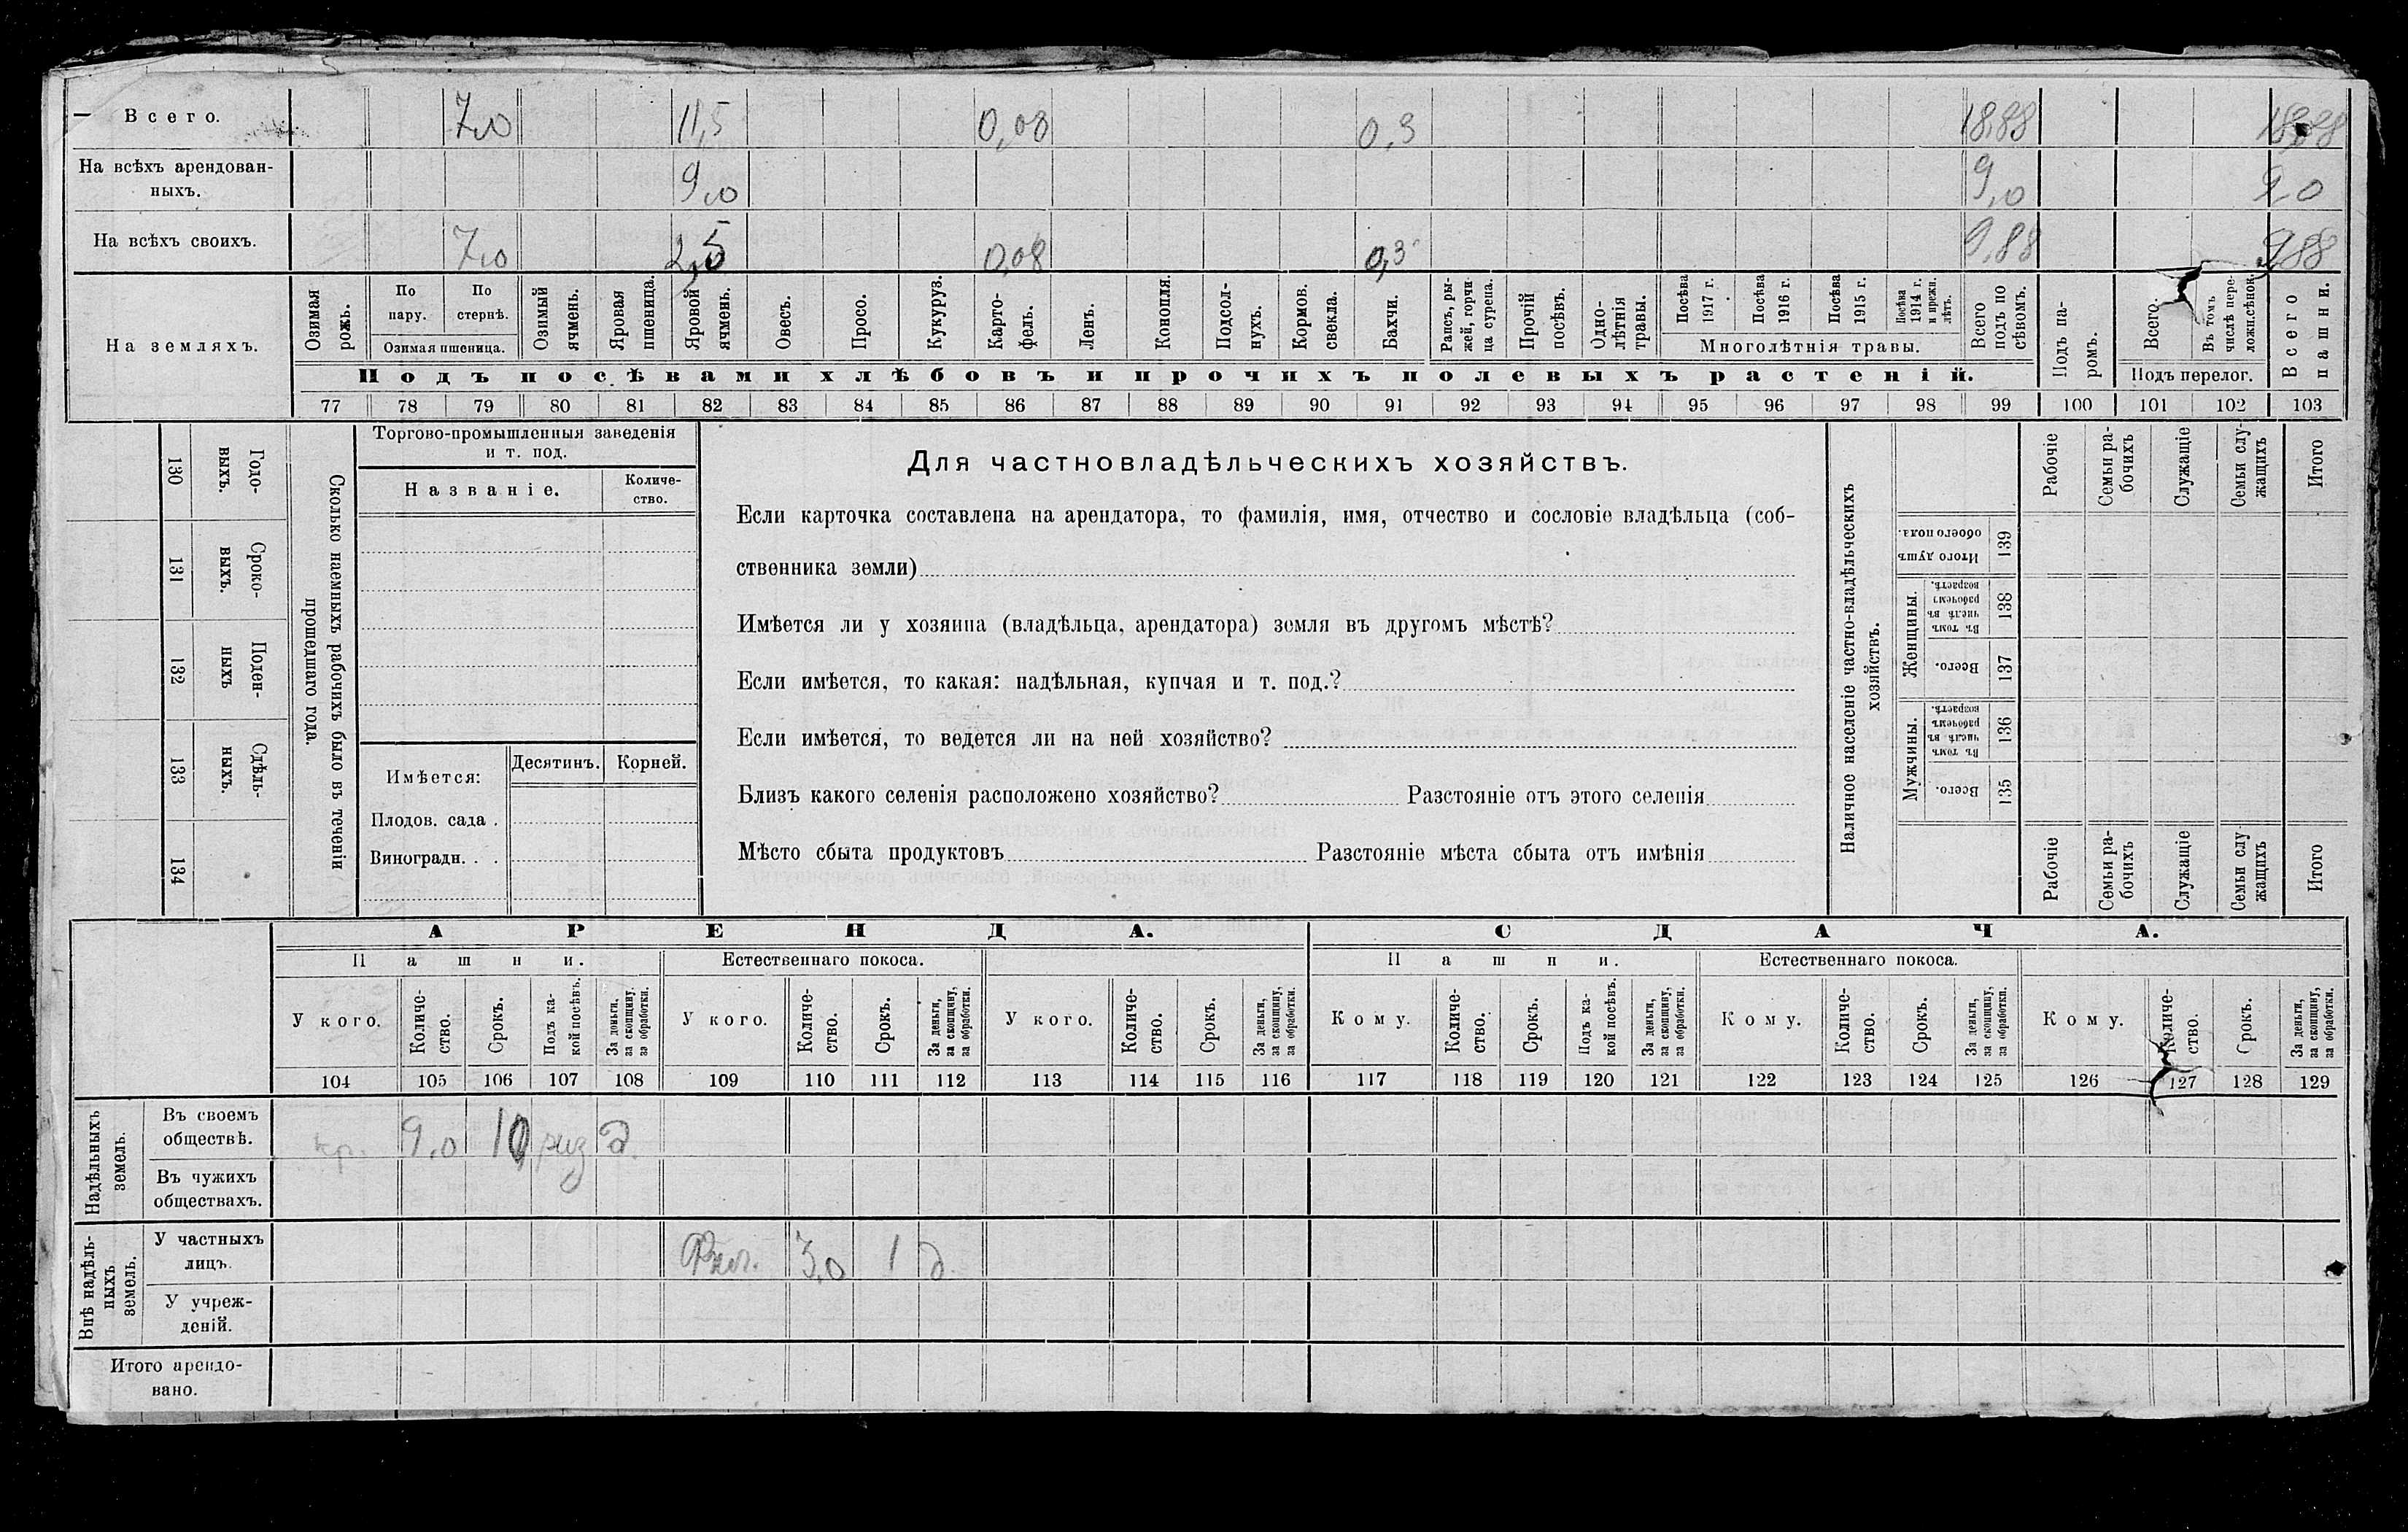 Всего. 7,0 11,5 0,08 0,3 18,88
На всѣхъ арендован-
ныхъ. 9,0 9,0 9,0
На всѣхъ своихъ. 7,0 2,5 0,08 0,3 9,88 9,88
На земляхъ.
Озимая рожь.
По пару.
По стернѣ.
Озимая пшеница.
Озимый ячмень.
Яровая пшеница.
Яровой ячмень.
Овесъ.
Просо.
Кукуруз.
Карто-
фель.
Ленъ.
Конопля.
Подсол-
нухъ.
Кормов. свекла.
Бахчи.
Рапсъ, ры-
жей, горчи-
ца сурепа.
Прочій посѣвъ.
Одно-
лѣтнія травы.
Посѣва 1917 г.
Посѣва 1916 г.
Посѣва 1915 г.
Посѣва 1914 г. и прежн. лѣтъ.
Многолѣтнія травы.
Всего подъ по
сѣвомъ.
Подъ па-
ромъ.
Всего.
Въ томъ числѣ пере-
ложн. сѣнок.
Подъ перелог.
Всего пашни.
Подъ посѣвами хлѣбовъ и прочихъ полевыхъ растеній.
77 78 79 80 81 82 83 84 85 86 87 88 89 90 91 92 93 94 95 96 97 98 99 100 101 102 103
130 Годо-
выхъ.
131 Сроко-
выхъ.
132 Поден-
ныхъ
133 Сдѣль-
ныхъ.
134
Сколько наемныхъ рабочихъ было въ теченіи
прошедшаго года.
Торгово-промышленныя заведенія
и т. под.
Названіе.
Количе-
ство.
Имѣется:
Десятинъ. Корней.
Плодов. сада .
Виноградн. . .
Для частновладѣльческихъ хозяйствъ.
Если карточка составлена на арендатора, то фамилія, имя, отчество и сословіе владѣльца (соб-
ственника земли)
Имѣется ли у хозяина (владѣльца, арендатора) земля въ другомъ мѣстѣ?
Если имѣется, то какая: надѣльная, купчая и т. под.?
Если имѣется, то ведется ли на ней хозяйство?
Близъ какого селенія расположено хозяйство? Разстояніе отъ этого селенія
Мѣсто сбыта продуктовъ Разстояніе мѣста сбыта отъ имѣнія
Наличное населеніе частно-владѣльческихъ
хозяйствъ.
Рабочіе
Семьи ра-
бочихъ
Служащіе
Семьи слу-
жащихъ
Итого
Итого душъ
обоего пола. 139
Женщины.
Въ томъ числѣ въ рабочемъ возрастѣ. 138
Всего. 137
Мужчины.
Въ томъ числѣ въ рабочемъ возрастѣ. 136
Всего. 135
Рабочіе
Семьи ра-
бочихъ
Служащіе
Семьи слу
жащихъ
Итого
АРЕНДА. СДАЧА.
Пашни. Естественнаго покоса. Пашни. Естественнаго покоса.
У кого.
Количе-
ство.
Срокъ.
Подъ ка-
кой посѣвъ.
За деньги,
за скопщину,
за обработки.
У кого.
Количе-
ство.
Срокъ.
За деньги,
за скопщину,
за обработки.
У кого.
Количе-
ство.
Срокъ.
За деньги,
за скопщину,
за обработки.
Кому.
Количе-
ство.
Срокъ.
Подъ ка-
кой посѣвъ.
За деньги,
за скопщину,
за обработки.
Кому.
Количе-
ство.
Срокъ.
За деньги,
за скопщину,
за обработки.
Кому.
Количе-
ство.
Срокъ.
За деньги,
за скопщину,
за обработки.
104 105 106 107 108 109 110 111 112 113 114 115 116 117 118 119 120 121 122 123 124 125 126 127 128 129
Надѣльныхъ
земель.
Въ своемъ
обществѣ. кр. 9,0 д.
Въ чужихъ
обществахъ.
Внѣ надѣль-
ныхъ
земель.
У частныхъ
лицъ. 3,0 1 д
У учреж-
деній.
Итого арендо-
вано.